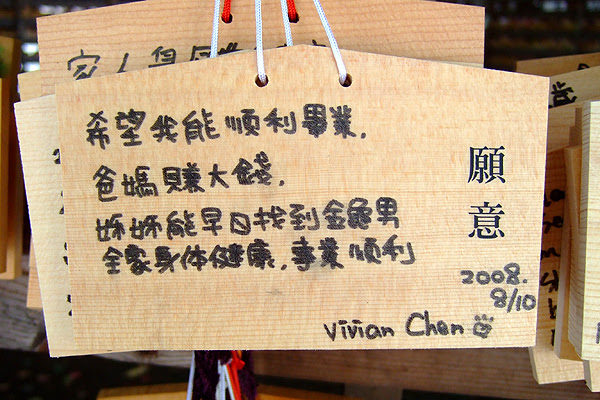 家人身
希望我能順利畢業.
爸媽賺大錢.
姊姊能早日找到金龜男
全家身体健康.事業順利
願意
2008.
8/10
Vivian Chen